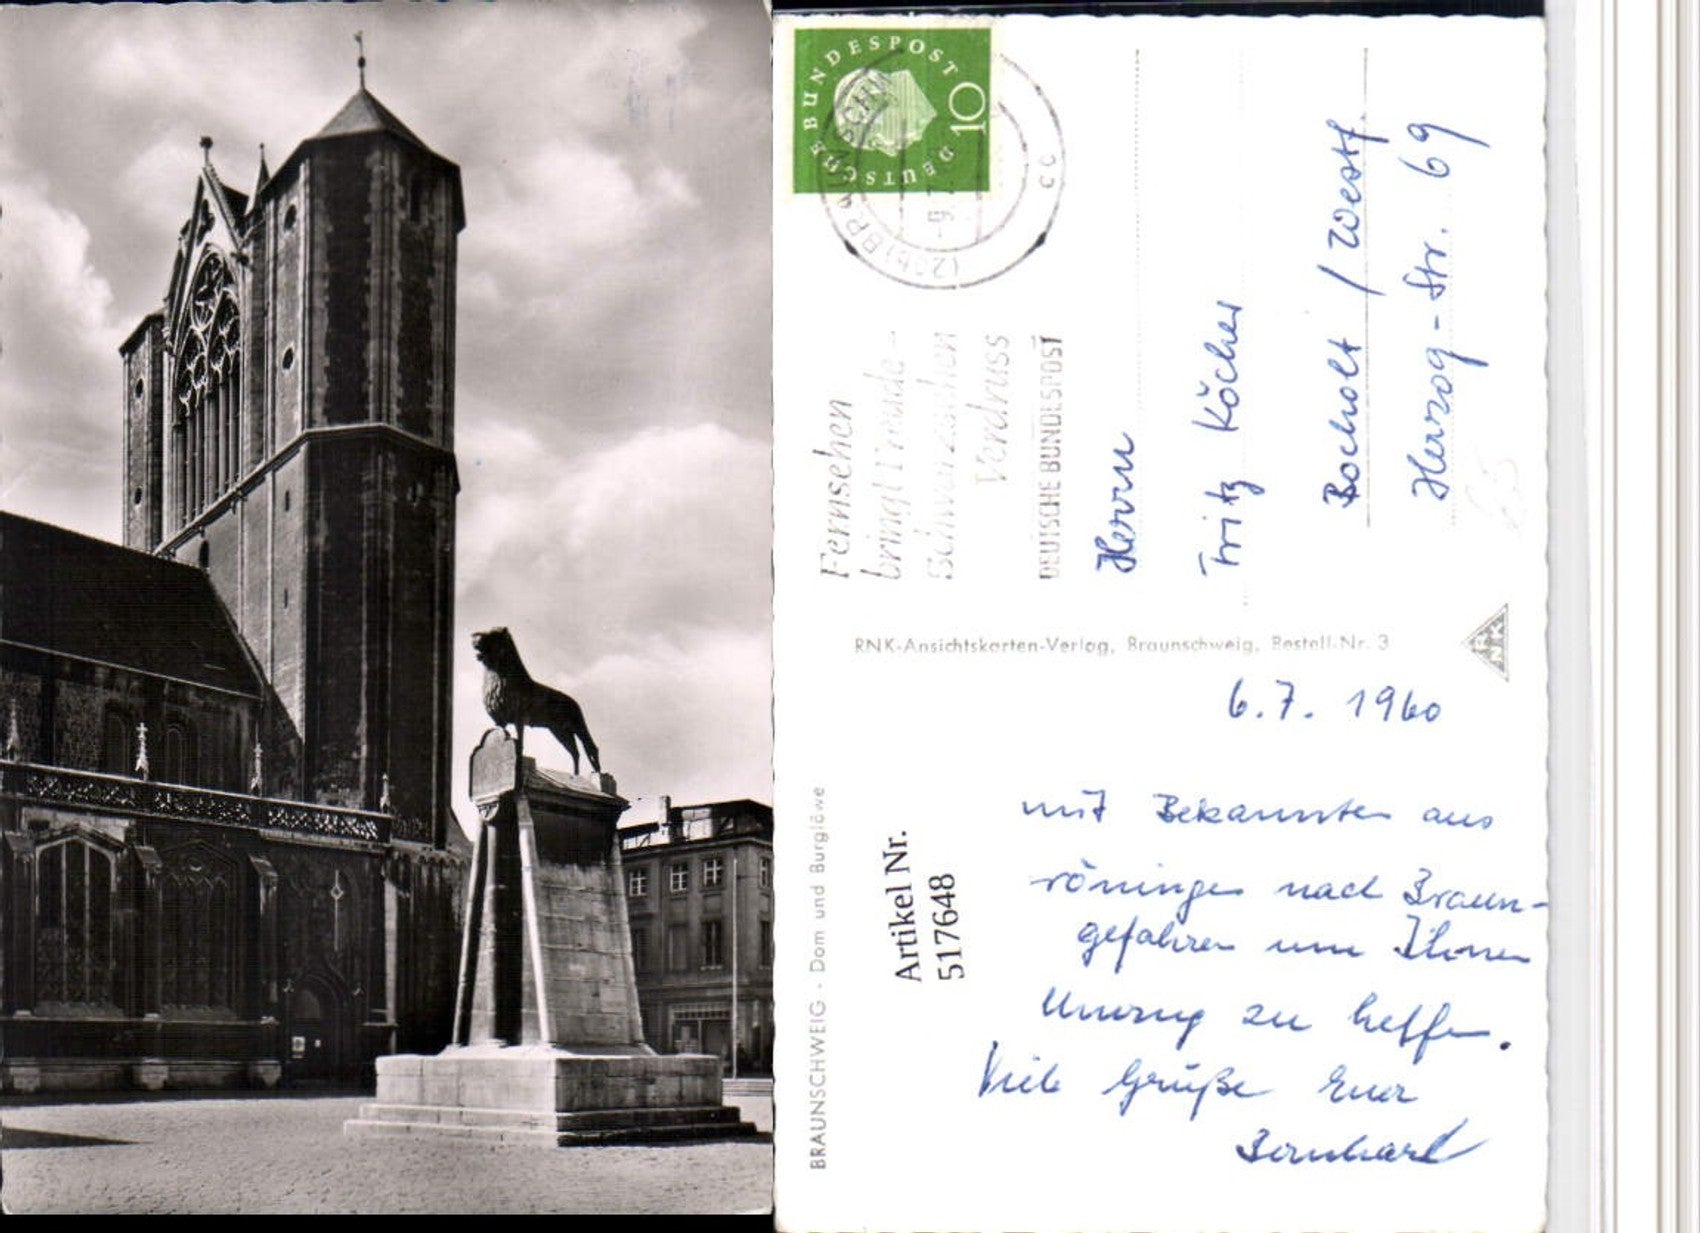 DEUTSCHE BUNDESPOST
10
(20b) BRAUNSCHW
CC
Fernsehen
bringt Freude -
Schwarzsehen
Verdruss
DEUTSCHE BUNDESPOST
Herrn
Fritz Köcher
Bocholt / Westf.
Herzog-Str. 69
RNK-Ansichtskarten-Verlag, Braunschweig, Bestell-Nr. 3
RNK
BRAUNSCHWEIG - Dom und Burglöwe
Artikel Nr.
517648
6.7. 1960
mit Bekannten aus
nach Braun-
gefahren um Ihnen
Umzug zu helfen.
Viele Grüße Euer
Bernhard